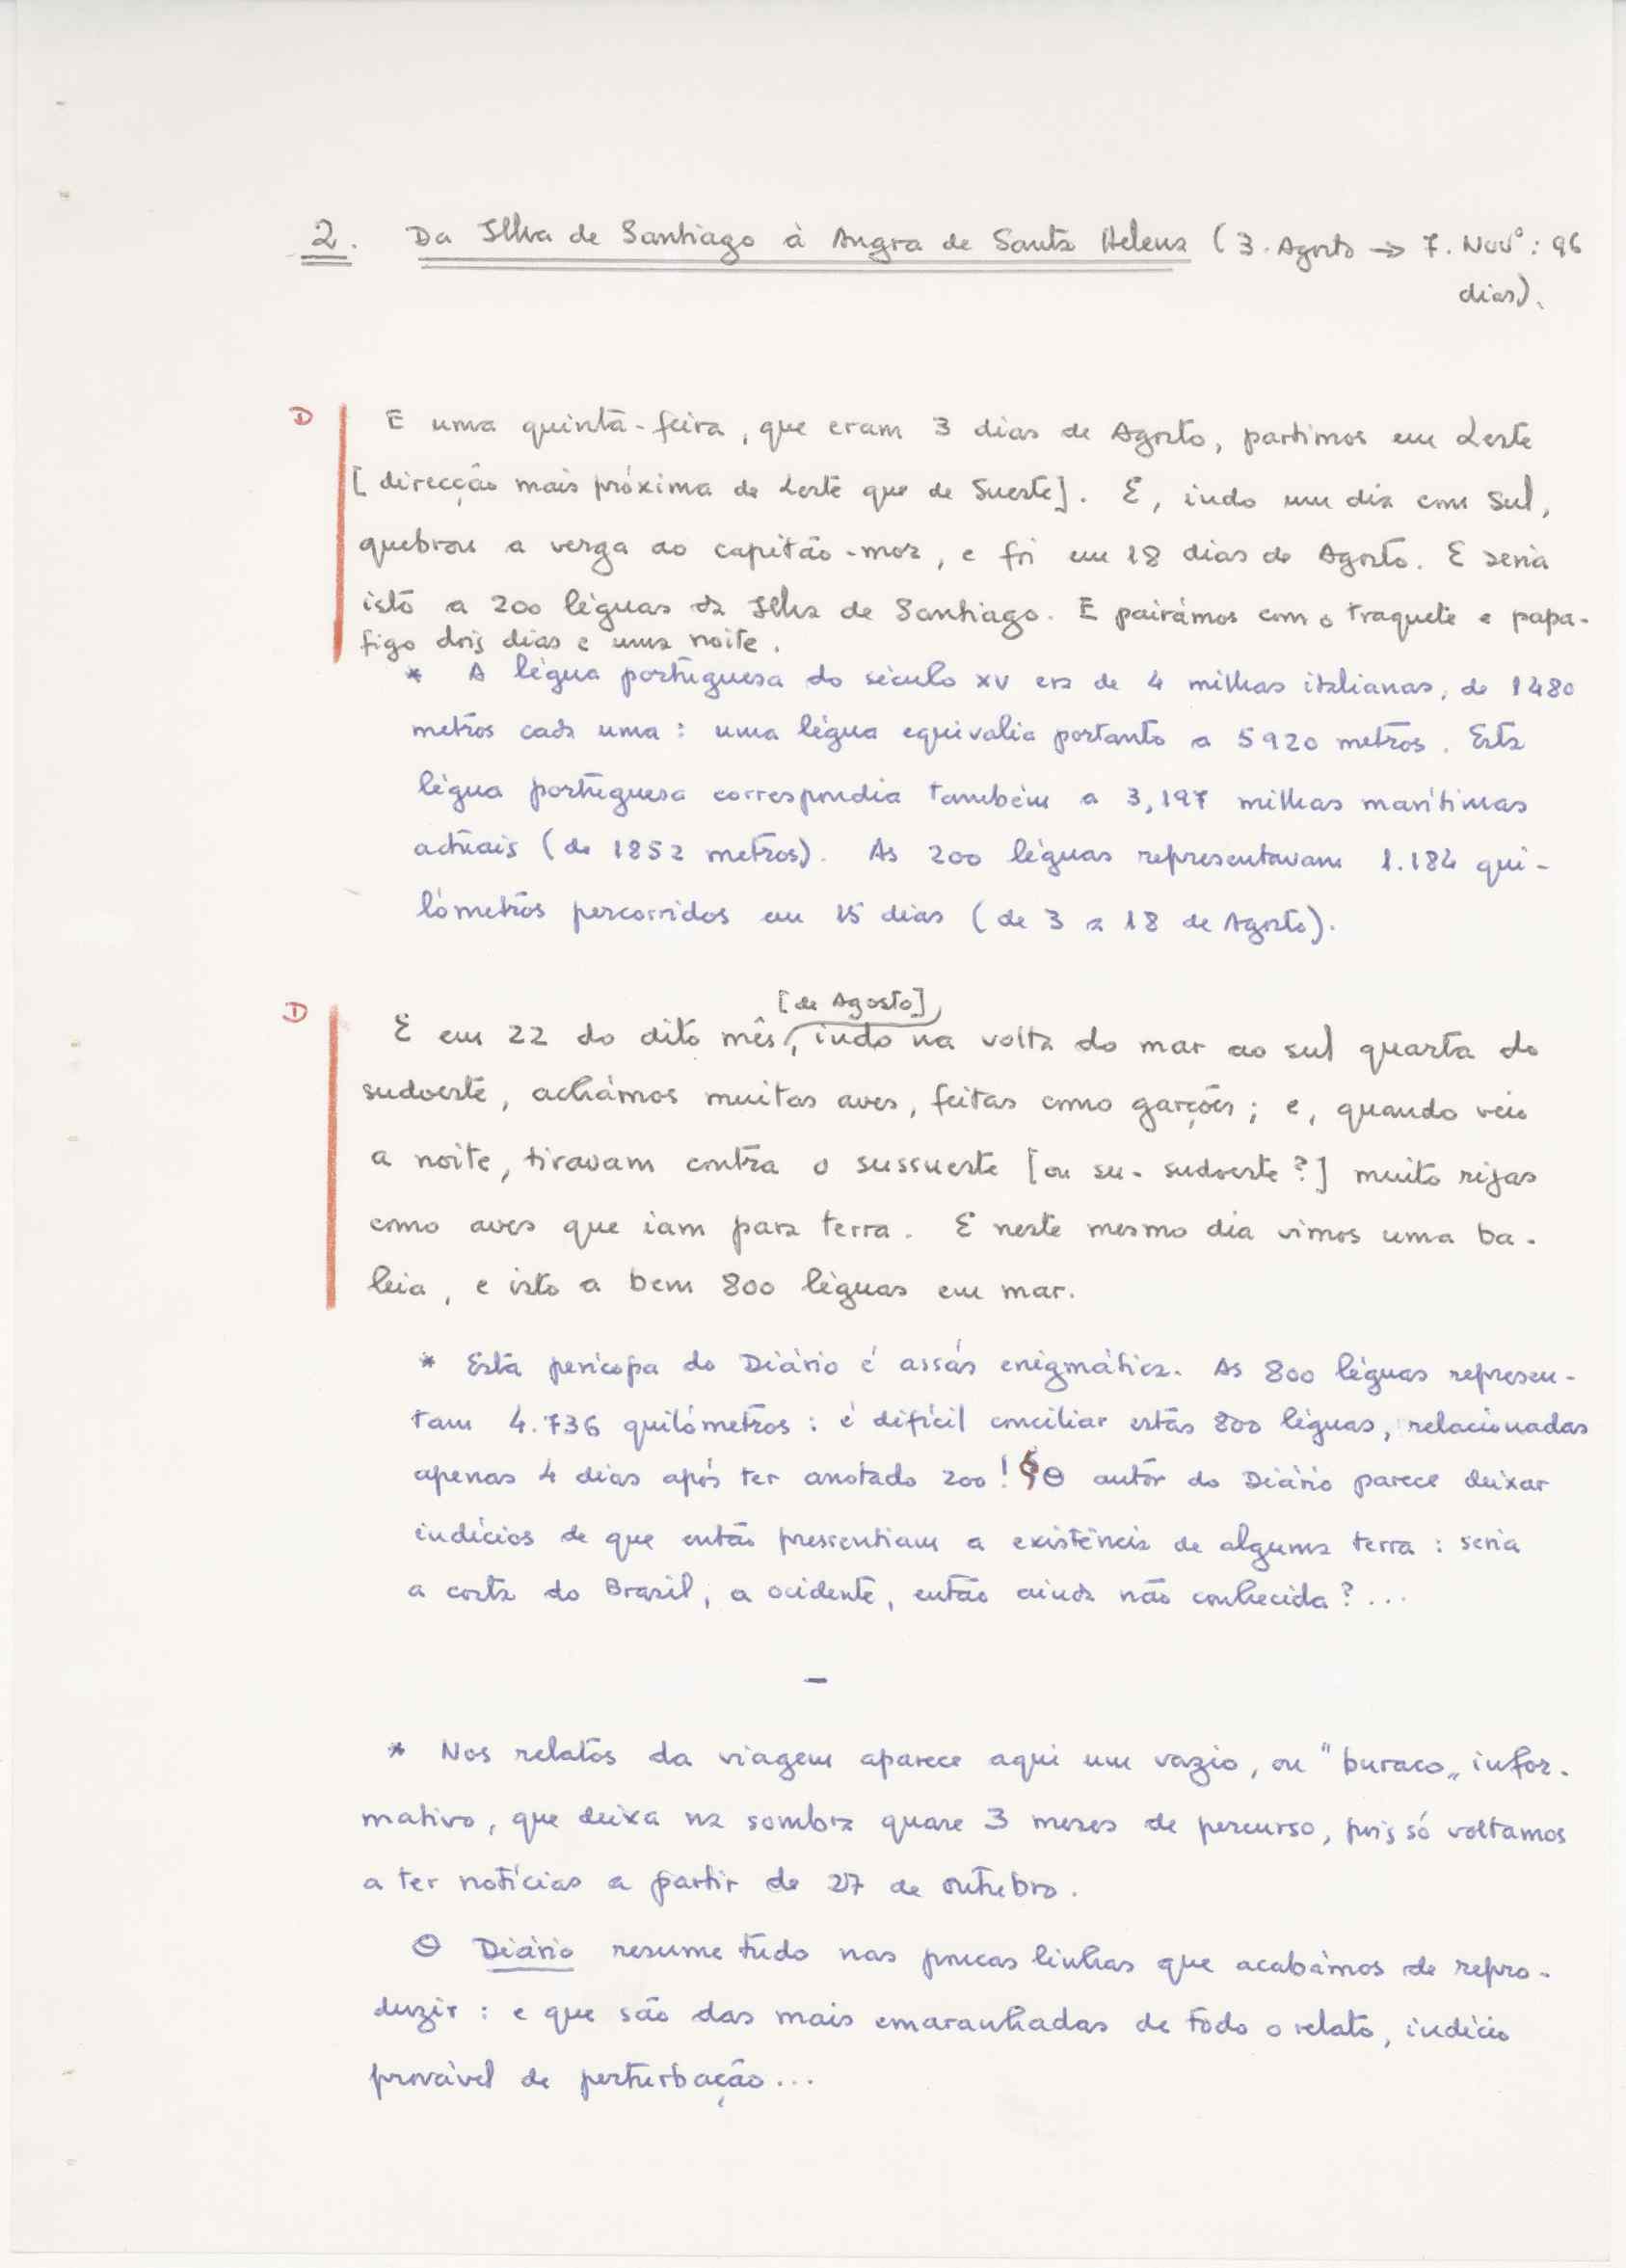 2. Da Ilha de Santiago à Angra de Santa Helena (3. Agosto → 7. Novº: 96
dias).
D E uma quinta-feira, que eram 3 dias de Agosto, partimos em Leste
[direcção mais próxima de Leste que de Sueste]. E, indo um dia com Sul,
quebrou a verga ao capitão-mor, e foi em 18 dias de Agosto. E seria
isto a 200 léguas da Ilha de Santiago. E pairámos com o traquete e papa-
figo dois dias e uma noite.
* A légua portuguesa do século XV era de 4 milhas italianas, de 1480
metros cada uma: uma légua equivalia portanto a 5920 metros. Esta
légua portuguesa correspondia também a 3,197 milhas marítimas
actuais (de 1852 metros). As 200 léguas representavam 1.184 qui-
lómetros percorridos em 15 dias (de 3 a 18 de Agosto).
[de Agosto]
D E em 22 do dito mês, indo na volta do mar ao sul quarta do
sudoeste, achámos muitas aves, feitas como garções; e, quando veio
a noite, tiravam contra o sussueste [ou su-sudoeste?] muito rijas
como aves que iam para terra. E neste mesmo dia vimos uma ba-
leia, e isto a bem 800 léguas em mar.
* Esta perícopa do Diário é assás enigmática. As 800 léguas represen-
tam 4.736 quilómetros: é difícil conciliar estas 800 léguas, relacionadas
apenas 4 dias após ter anotado 200! § O autor do Diário parece deixar
indícios de que então pressentiam a existência de alguma terra: seria
a costa do Brasil, a ocidente, então ainda não conhecida?...
–
* Nos relatos da viagem aparece aqui um vazio, ou "buraco„ infor-
mativo, que deixa na sombra quase 3 meses de percurso, pois só voltamos
a ter notícias a partir de 27 de outubro.
O Diário resume tudo nas poucas linhas que acabámos de repro-
duzir: e que são das mais emaranhadas de todo o relato, indício
provável de perturbação...